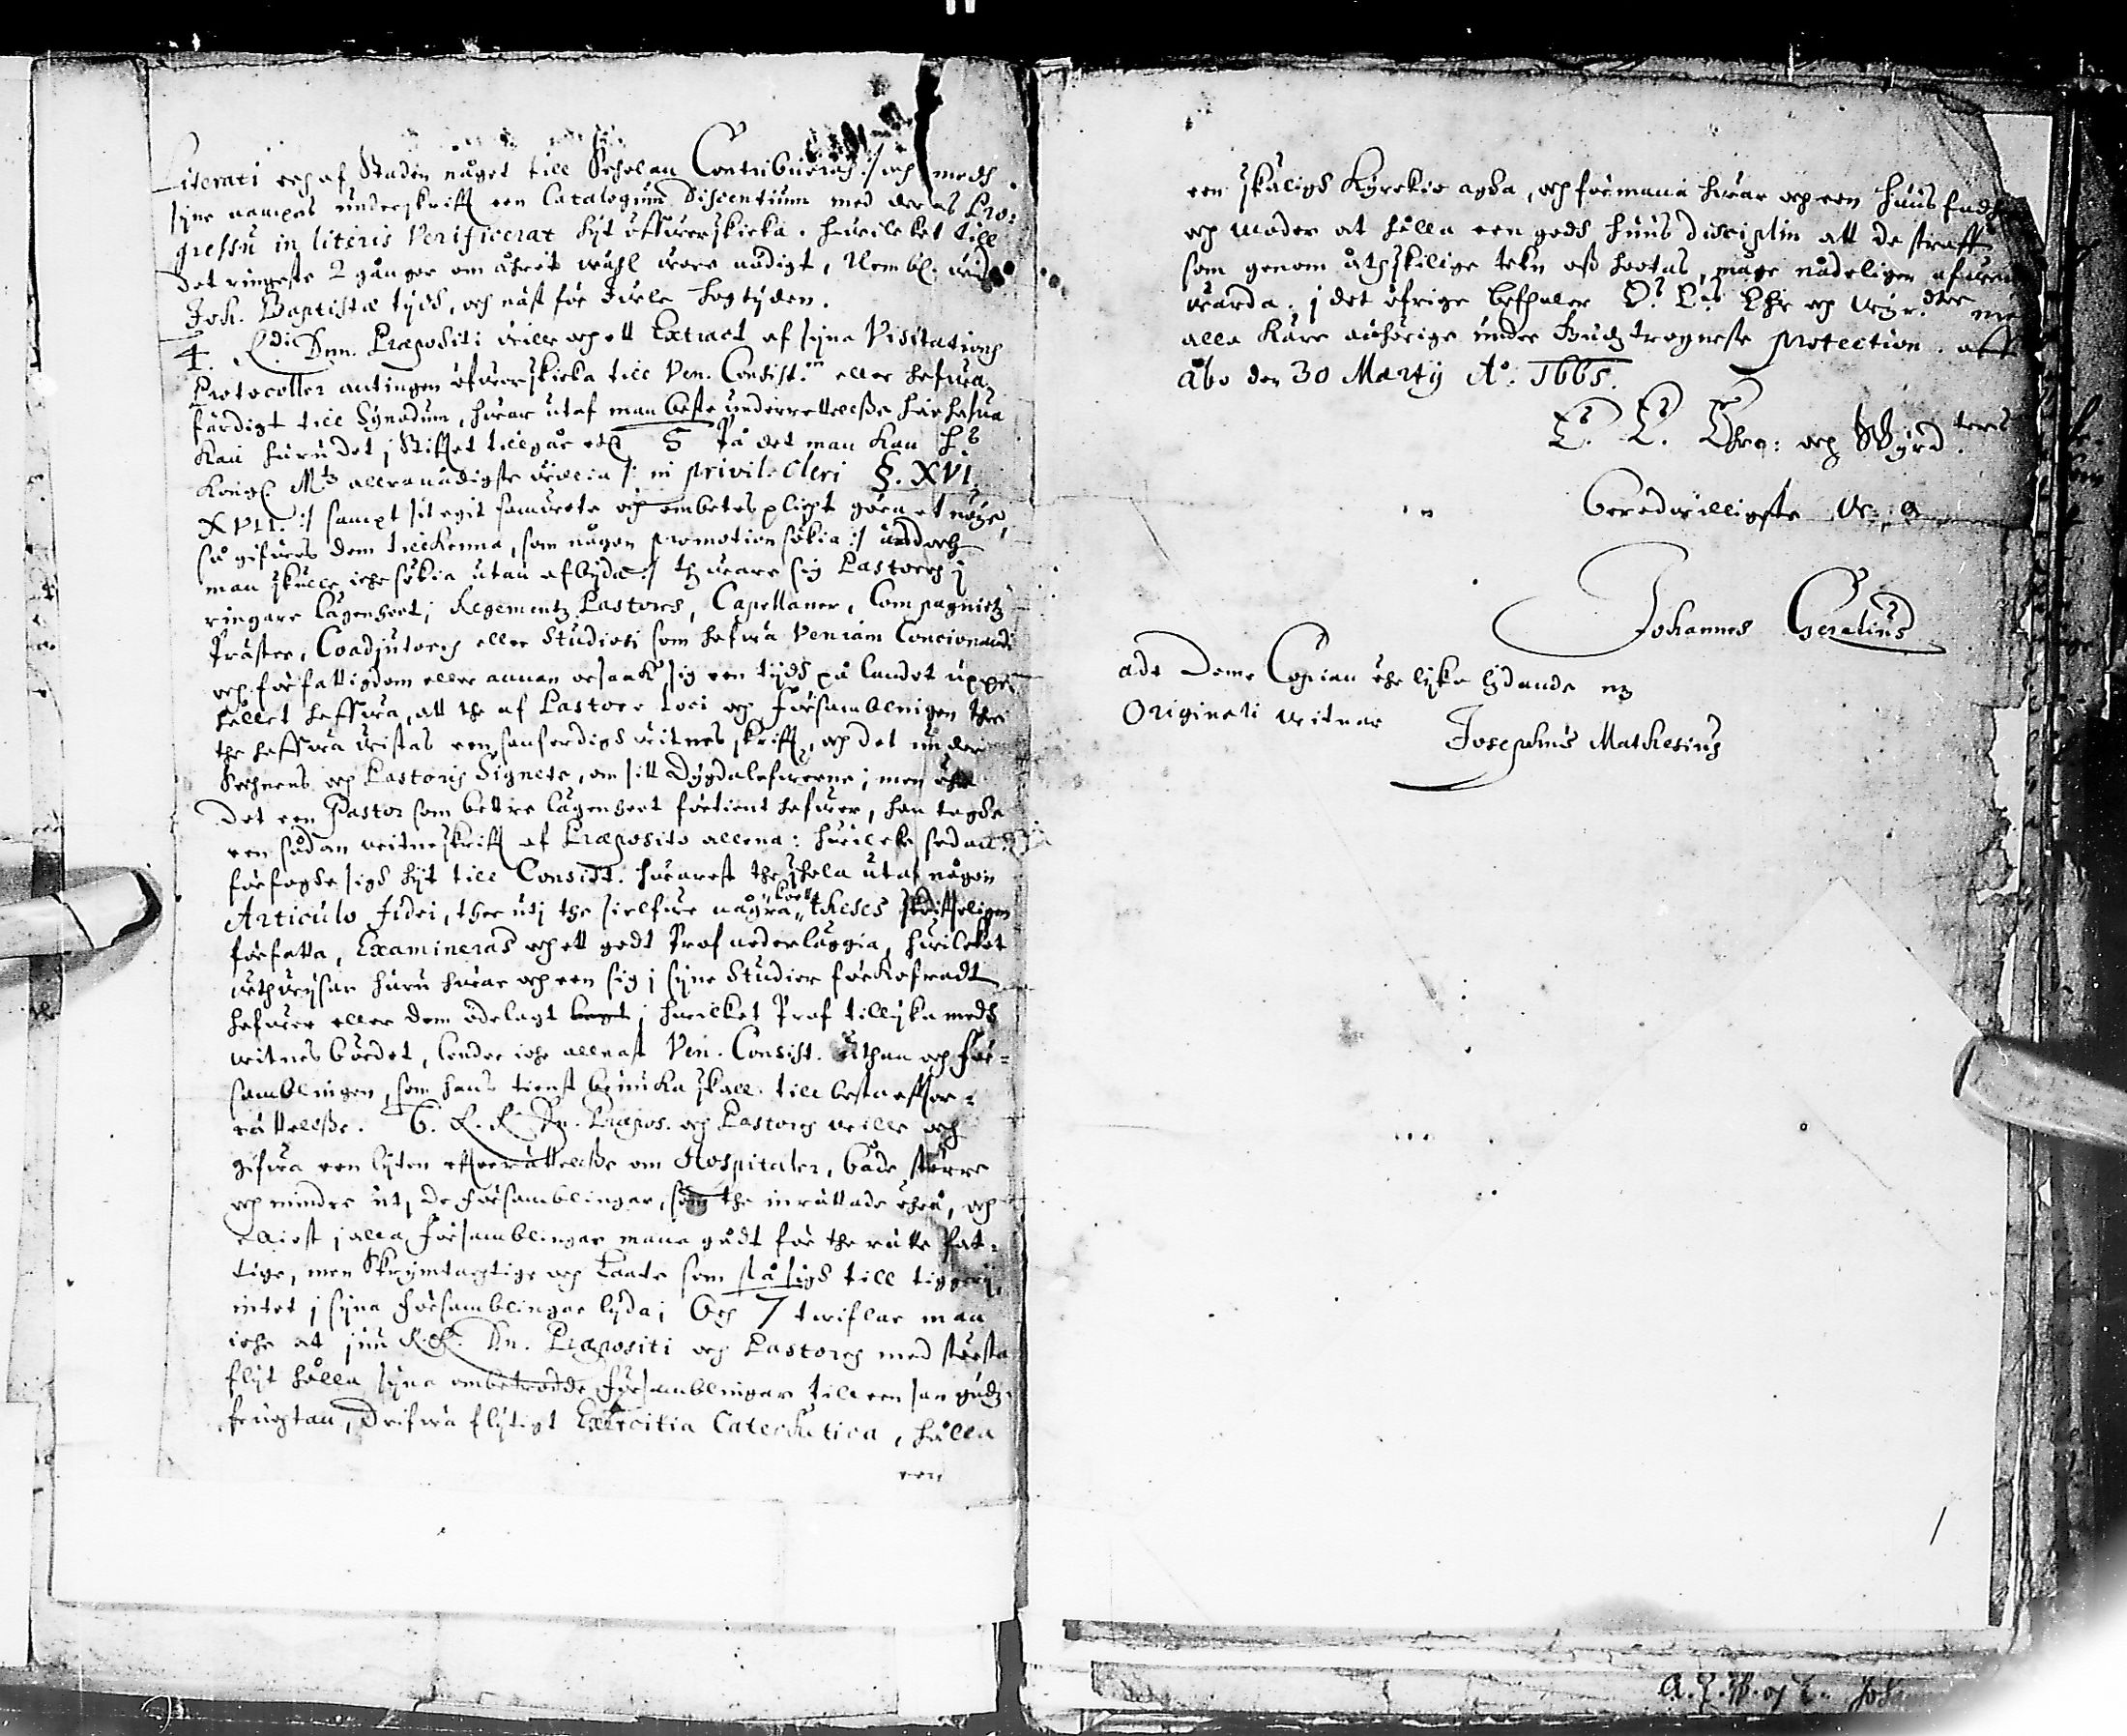 Literati och af Staden något till Scholan Contribuerar :/ och medh
syne nampns underskrifft een Catalogum Discentium med deras Pro-
gressu in literis Verificerat hijt öffwerskicka. hwilcket till
det ringeste 2 gånger om åhret wähl wore nödigt, Nembl. wid
Joh. Baptistæ tijdh, och näst för Jule högtijden.
4. R.di Dnn. Præpositi wille och ett Extract af syne Visitations
Protocoller antingen öfwerskicka till Ven. Consist. eller hafwa
färdigt till Synodum, hwar utaf man beste underrettelsse här hafwa
kan huru det i Stifftet tillgår etc 5 På det man kan H.s
Kongl. M.tz allranådigste willia /: in privil. Cleri §. XVI.
XVII. :/ sampt sit egit samwete och embetes plicht göra et nöije,
så gifwes dem tillkenna, som någon promotion sökia :/ endoch
man skulle icke sökia utan afbijda :/ the ware sig Pastores i
ringare lägenheet, Regementz Pastores, Capellaner, Compagnietz
Präster, Coadjutores eller Studiosi som hafwa Veniam Concionandi
och för fattigdom eller annan orsaak sig een tijdh på landet uppe-
hållet haffwa, att the af Pastore Loci och Församblingen ther
the haffwa wistas een sanferdigh witnes skrifft, och det under
Sochnens och Pastoris Signete, om sitt dygdalefwerne; men
det een Pastor som bettre lägenheet förtient hafwer, han tagde
een sådan witneskrifft af Præposito allena: hwilcke sedan
förfoge sigh hijt till Consist. hwarest the skola utaf någon
Articulo fidei, ther utj the sielfwe några korta theses skriffteligen
författa, Examineras och ett godt Prof nederläggia, hwilcket
uthwijsar huru hwar och een sig i syne Studier förkofradt
hafwer eller dem ödelagt; hwilcket Prof tillijka medh
witnes bördet, lender icke allenast Ven. Consist. uthan och För-
samblingen, som hans tienst bruka skall till besta effter-
rättellsse. 6. R. R. Dn. Præpos. och Pastores wille och
gifwa een lijten effterrättelsse om Hospitaler, både större
och mindre uti de Församblingar, som the inrättade ähre, och
eliest i alla Församblingar mana gådt för the rätte Fat-
tige, men Skrymtachtige och Laate som slå sigh till tiggerij
intet i syna Församblingar lyda; Och 7 twiflar man
icke at ju R.R. Dn. Præpositi och Pastores med största
flijt hålla syna ombetrodde Församblingar till een san gudz-
fruchtan, drifwa flijtigt Exercitia Catechetica, hålla
een
een skäligh Kyrckio agha, och förmana hwar och een Huus fadher
och moder at hålla een godh huus disciplin att de straff
som genom åthskilige tekn oss hootas, måge nådeligen afwend
warda. i det öfrige befhaler E.s E.s Ehr och Wyr.dter me
alla Käre anhörige under Gudz trogneste protection. aff
Åbo den 30 Martij A.o 1665.
E.s E.s Ehre: och Wyrd.ters
beredwilligste W: g.
Johannes Gezelius
att denne Copian ähr lijka lydande m
Originali witnar
Josephus Mathesius